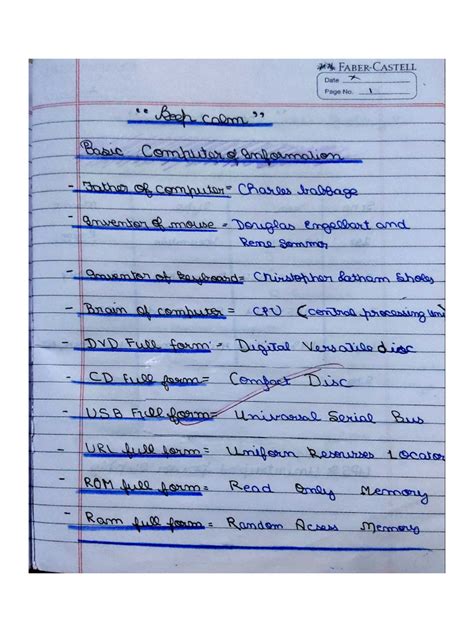 FABER-CASTELL
Date x
Page No. 1
" Keep calm "
Basic Computer of Information
- Father of computer = Charles babbage
- Inventor of mouse = Douglas Engelbart and
Rene Sommer
- Inventor of Keyboard = Chirstopher Latham Sholes
- Brain of computer = CPU (central processing Uni
- DVD Full form = Digital Versatile disc
- CD full form = Compact Disc
- USB Full form = Universal Serial Bus
- URL full form = Uniform Resourses Locator
- ROM full form = Read Only Memory
- Ram full form = Random Acsess Memory